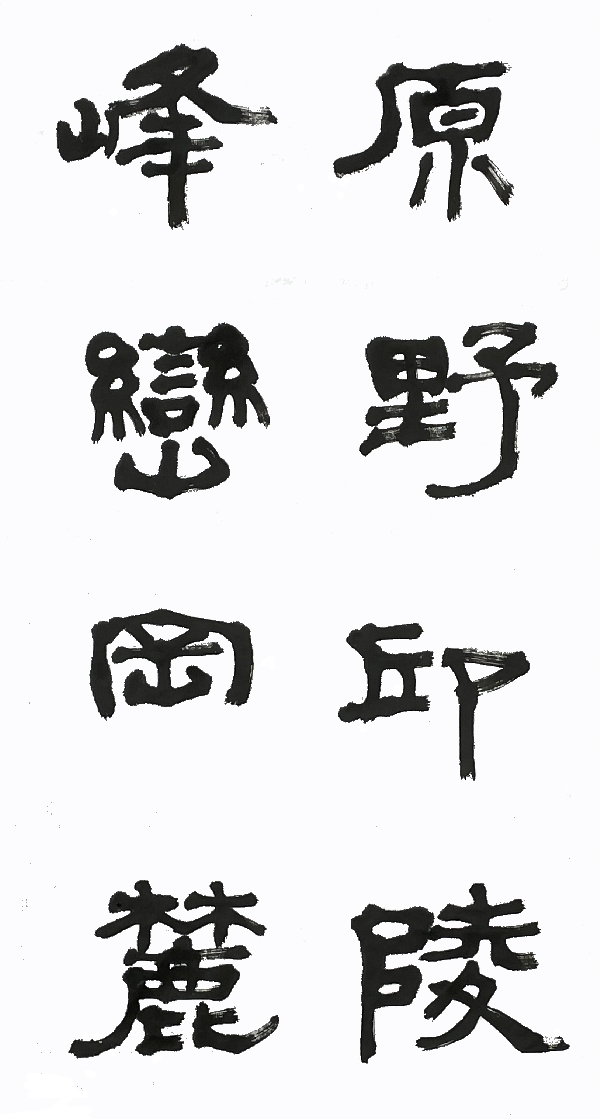 原野邱陵
峰巒岡麓